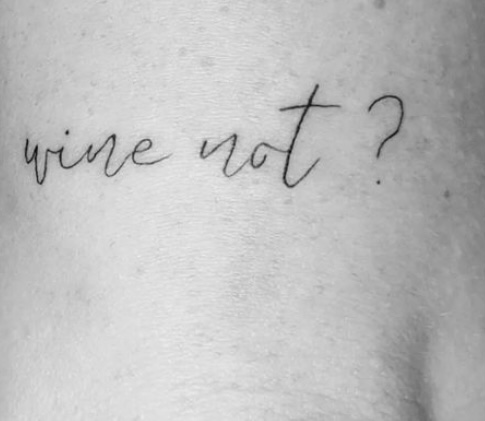 wine not ?